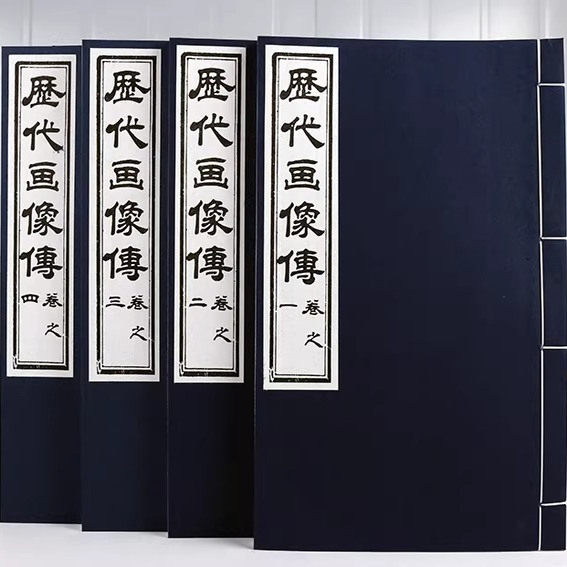 歷代画像傳
卷之一
歷代画像傳
卷之二
歷代画像傳
卷之三
歷代画像傳
卷之四